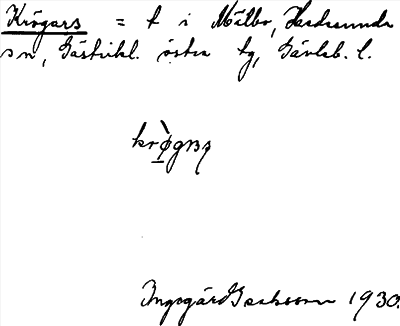 Krögars = t i Mälbo, Hedesunda
sn, Gästrikl. östra tg, Gävleb. l.
krø̀gaʂ
Ingegärd Isaksson 1930.